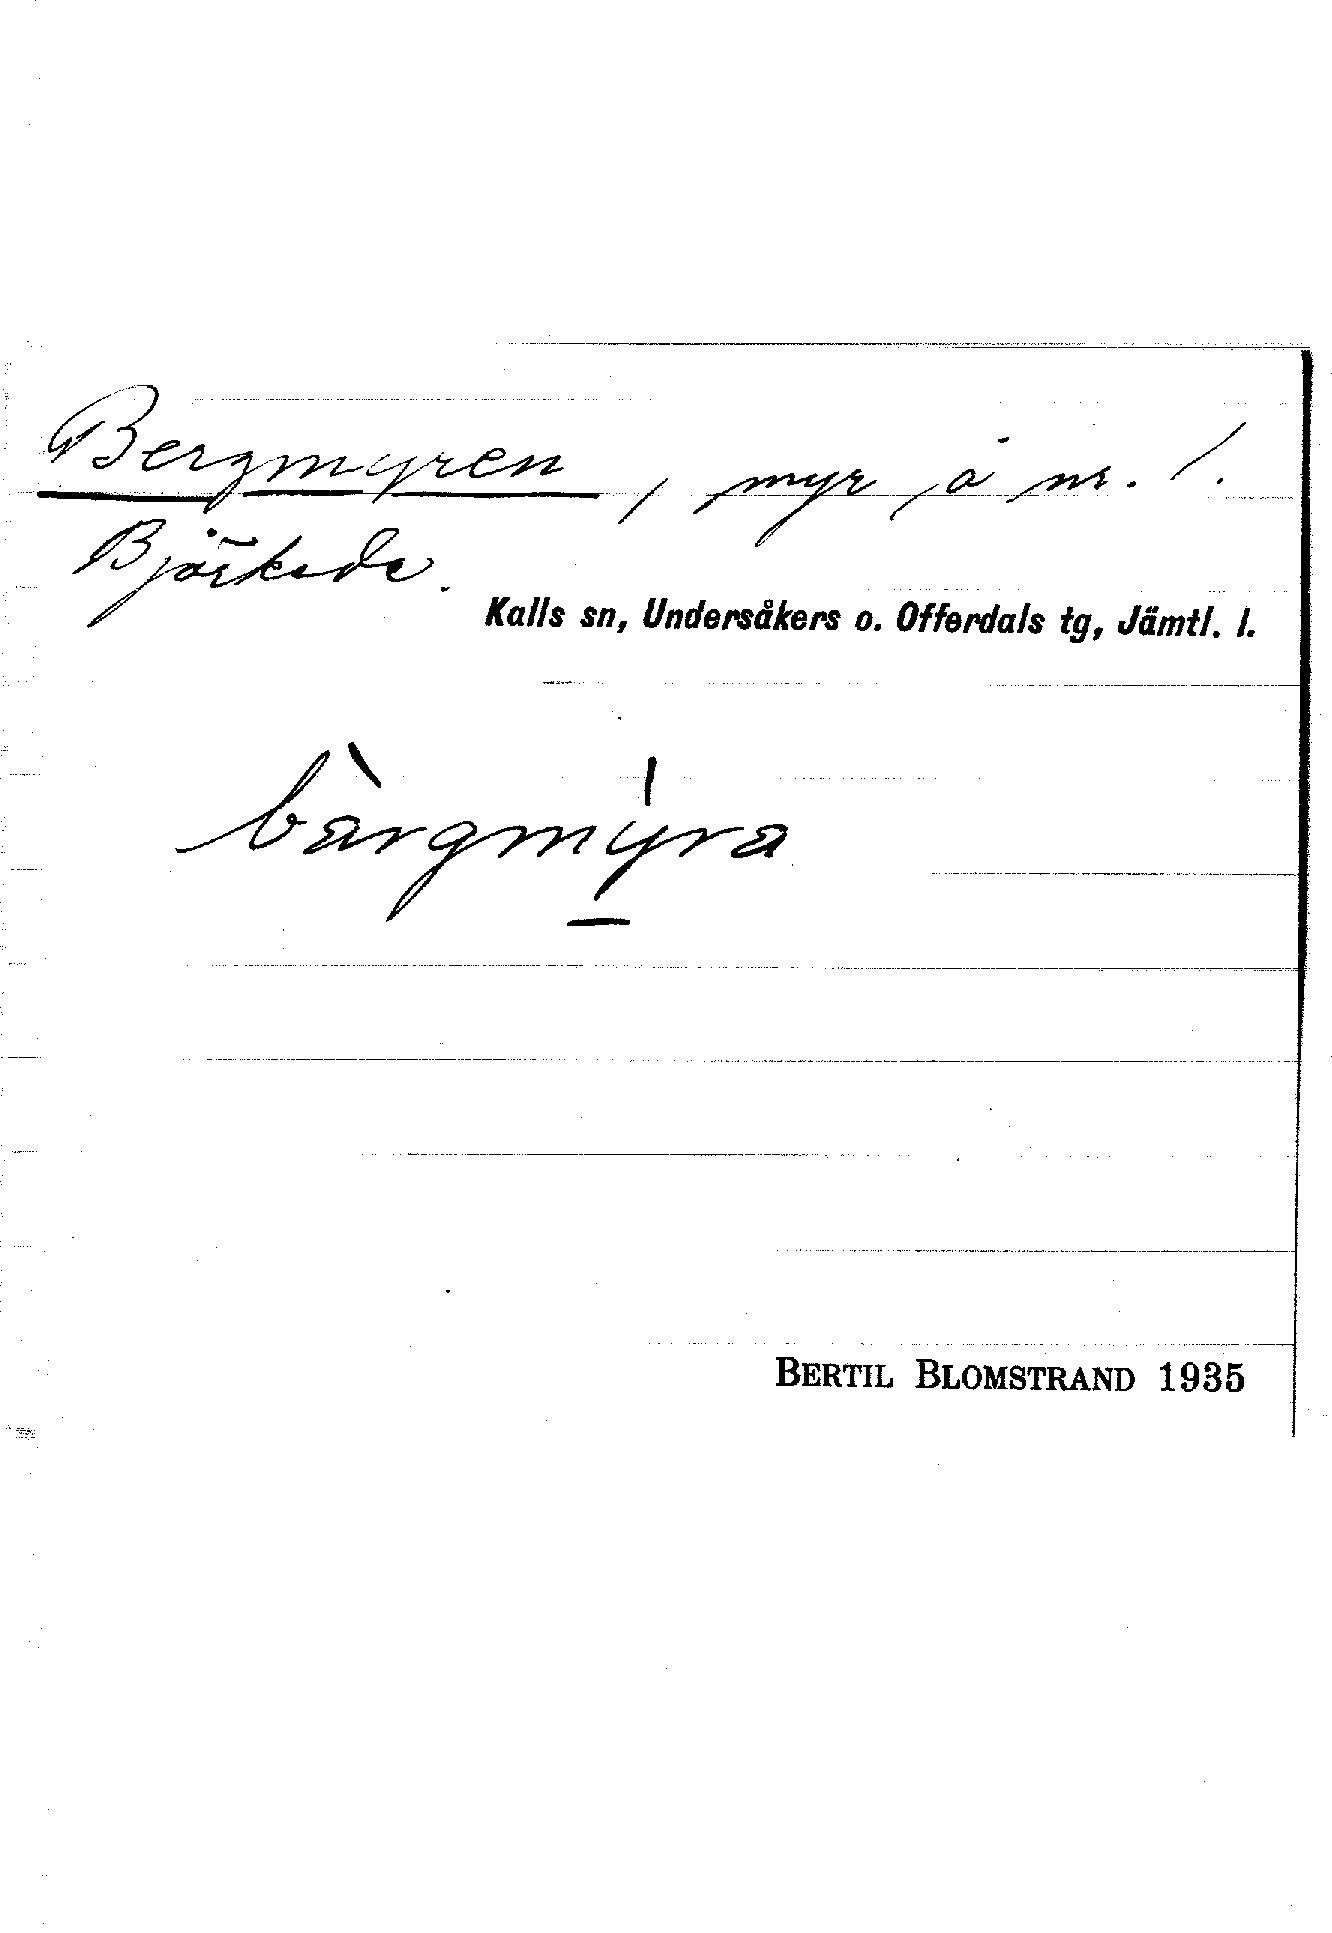 Bergmyren, myr å nr. 1.
Björkede.
Kalls sn, Undersåkers o. Offerdals tg, Jämtl. l.
bàrgmy̱̍ra
BERTIL BLOMSTRAND 1935